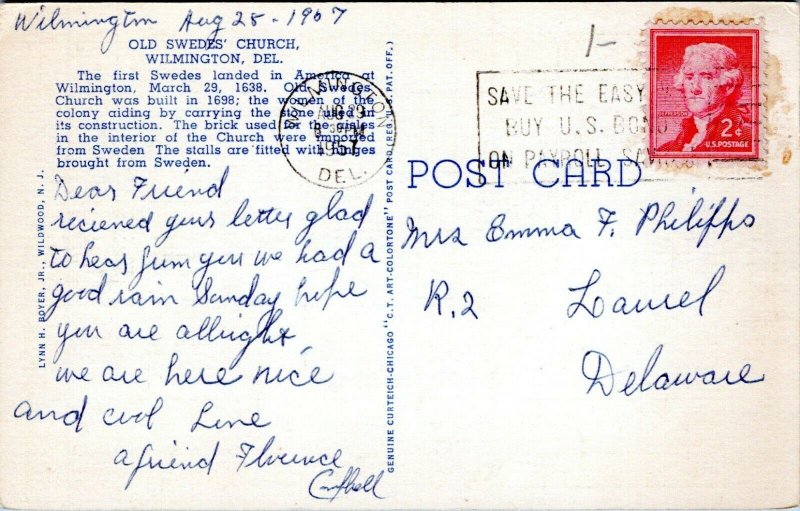 Wilmington Aug 28 - 1957
OLD SWEDES' CHURCH,
WILMINGTON, DEL.
The first Swedes landed in America at
Wilmington, March 29, 1638. Old Swedes
Church was built in 1698; the women of the
colony aiding by carrying the stone used in
its construction. The brick used for the aisles
in the interior of the Church were imported
from Sweden The stalls are fitted with hinges
brought from Sweden.
WILMINGTON
AUG 29
1957
DEL.
SAVE THE EASY
BUY U.S. BOND
ON PAYROLL SAVINGS
JEFFERSON
2¢
U.S. POSTAGE
POST CARD
Dear Friend
reciened your letter glad
to hear frum you we had a
good rain Sunday hope
you are allright
we are here nice
and cool
a friend Florence
Campbell
Mrs Emma F. Philipps
R.2 Laurel
Delaware
LYNN H. BOYER, JR., WILDWOOD, N. J.
GENUINE CURTEICH-CHICAGO "C.T. ART-COLORTONE" POST CARD (REG. U.S. PAT. OFF.)